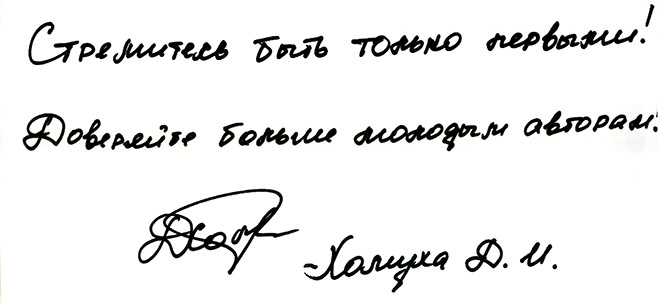 Стремитесь быть только первыми!
Доверяйте больше молодым авторам.
Хомуха Д. И.